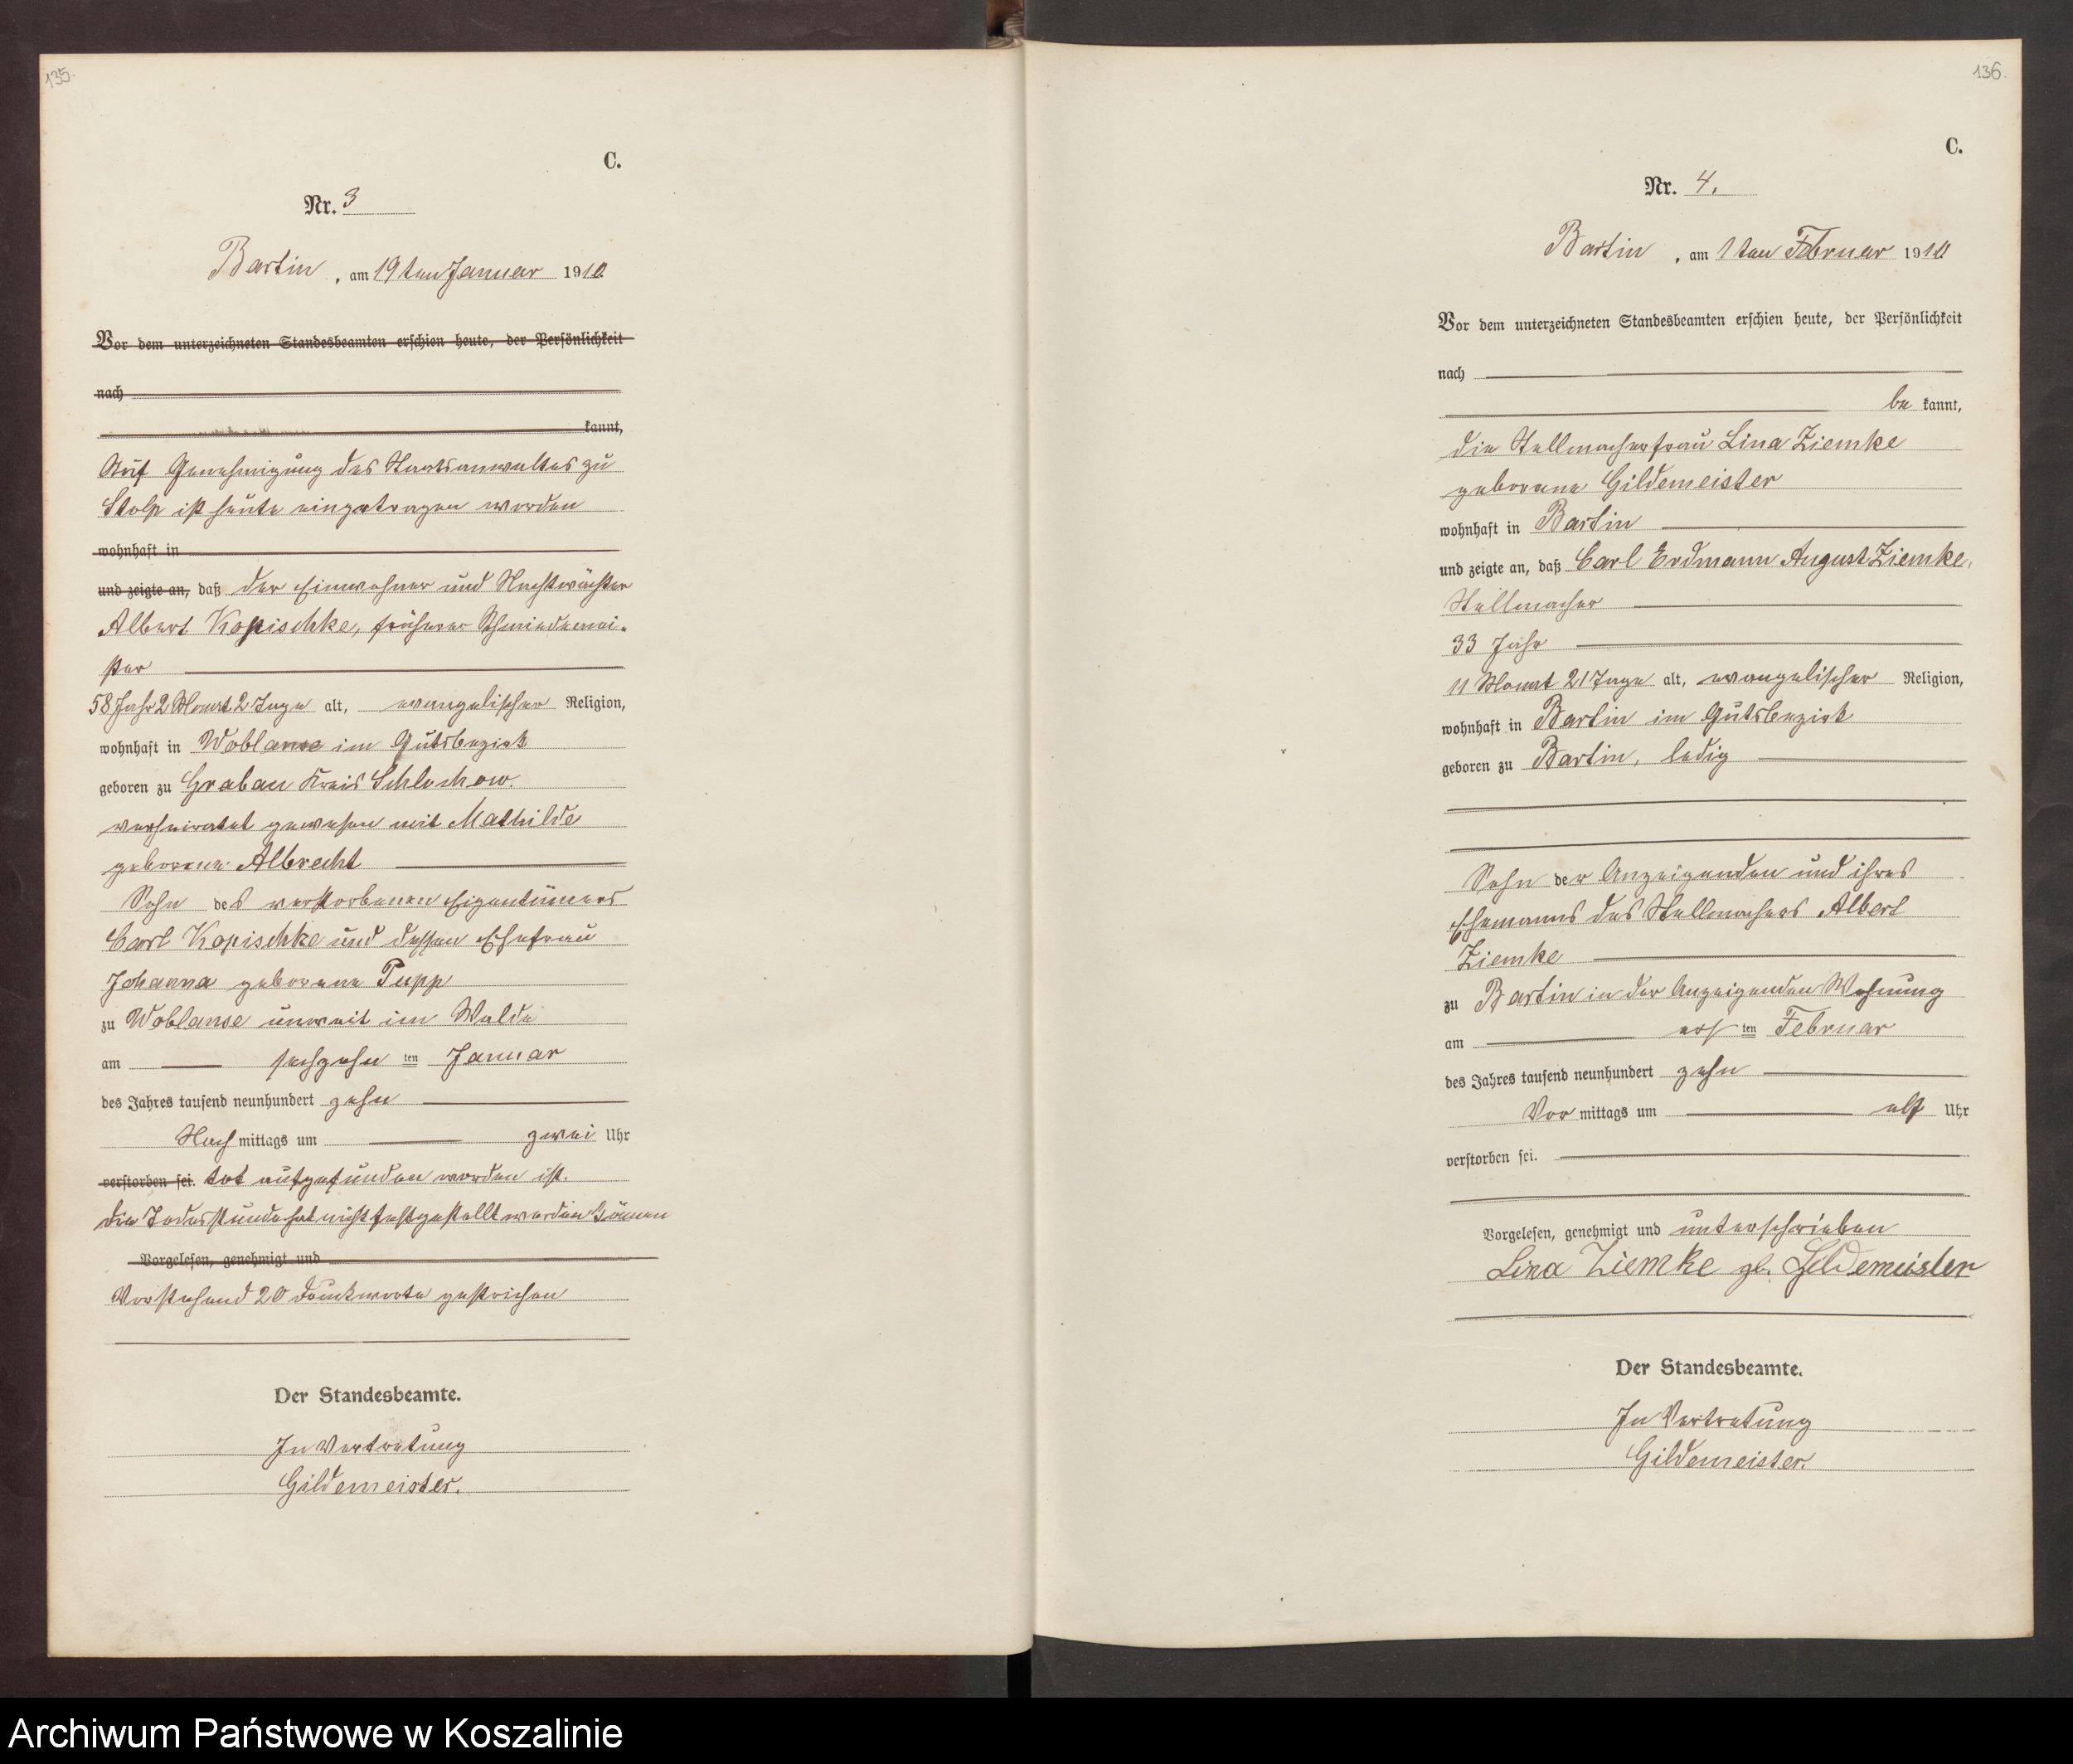 135.
C.
Nr. 3
Bartin, am 19ten Januar 1910
Vor dem unterzeichneten Standesbeamten erschien heute, der Persönlichkeit
nach
kannt,
Auf Genehmigung des Staatsanwaltes zu
Stolp ist heute eingetragen worden
wohnhaft in
und zeigte an, daß der Einwohner und Nachtwächter
Albert Kopischke, früherer Schmiedemei-
ster
58 Jahr 2 Monat 2 Tage alt, evangelischer Religion,
wohnhaft in Woblanse im Gutsbezirk
geboren zu Grabau Kreis Schlochow.
verheiratet gewesen mit Mathilde
geborene Albrecht
Sohn des verstorbenen Eigentümers
Carl Kopischke und dessen Ehefrau
Johanna geborene Pupp
zu Woblanse unweit im Walde
am sechzehn ten Januar
des Jahres tausend neunhundert zehn
Nach mittags um zwei Uhr
verstorben sei. tot aufgefunden worden ist.
Die Todesstunde hat nicht festgestellt werden können
Vorgelesen, genehmigt und
Vorstehend 20 Druckworte gestrichen
Der Standesbeamte.
In Vertretung
Gildemeister.
136.
C.
Nr. 4.
Bartin, am 1ten Februar 1910
Vor dem unterzeichneten Standesbeamten erschien heute, der Persönlichkeit
nach
be kannt,
die Stellmacherfrau Lina Ziemke
geborene Gildemeister
wohnhaft in Bartin
und zeigte an, daß Carl Erdmann August Ziemke,
Stellmacher
33 Jahr
11 Monat 21 Tage alt, evangelischer Religion,
wohnhaft in Bartin im Gutsbezirk
geboren zu Bartin, ledig
Sohn der Anzeigenden und ihres
Ehemanns des Stellmachers Albert
Ziemke
zu Bartin in der Anzeigenden Wohnung
am ers ten Februar
des Jahres tausend neunhundert zehn
Vor mittags um elf Uhr
verstorben sei.
Vorgelesen, genehmigt und unterschrieben
Lina Ziemke gb. Gildemeister
Der Standesbeamte.
In Vertretung
Gildemeister.
Archiwum Państwowe w Koszalinie